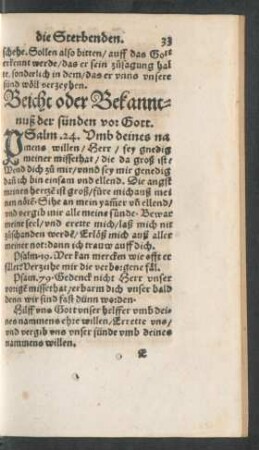 die Sterbenden. 33
schehe. Sollen also bitten/ auff das Gott
erkennt werde/ das er sein zůsagung hal
te. sonderlich in dem/ das er vnns vnsere
sünd wöll verzeyhen.
Beicht oder Bekannt-
nuß der sünden vor Gott.
PSalm .24. Vmb deines na
mens willen/ Herr/ sey gnedig
meiner missethat/ die da groß ist.
Wend dich zů mir/ vnnd sey mir genedig
dañ ich bin einsam vnd ellend. Die angst
meines hertzē ist groß/ füre mich auß mei
nen nötē. Sihe an mein jamer vñ ellend/
vnd vergib mir alle meine sünde. Bewar
meine seel/ vnd errette mich/ laß mich nit
zůschanden werdē/ Erlöß mich auß aller
meiner not: dann ich trauw auff dich.
Psalm. 19. Wer kan mercken wie offt er
fället: Verzyhe mir die verborgene fäl.
Psalm. 79. Gedenck nicht Herr vnser
vorigē missethat/ erbarm dich vnser bald
denn wir sind fast dünn worden.
Hilff vns Gott vnser helffer vmb dei-
nes nammens ehre willen/ Errette vns/
vnd vergib vns vnser sünde vmb deines
nammens willen.
E